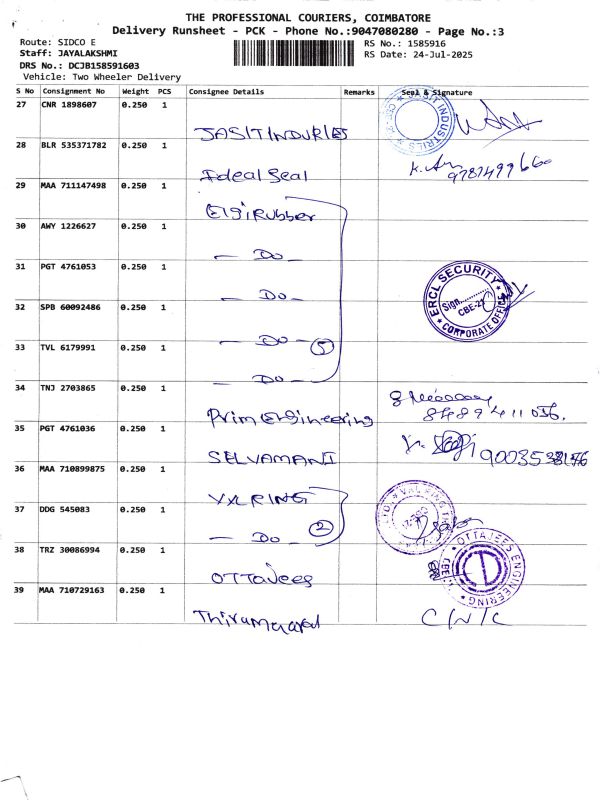 THE PROFESSIONAL COURIERS, COIMBATORE
Delivery Runsheet - PCK - Phone No.:9047080280 - Page No.:3
Route: SIDCO E
RS No.: 1585916
Staff: JAYALAKSHMI
RS Date: 24-Jul-2025
DRS No.: DCJB158591603
Vehicle: Two Wheeler Delivery
S No Consignment No Weight PCS Consignee Details Remarks Seal & Signature
27 CNR 1898607 0.250 1
JASIT INDURIES
28 BLR 535371782 0.250 1
Ideal Seal
9787499660
29 MAA 711147498 0.250 1
Elgi Rubber
30 AWY 1226627 0.250 1
— Do —
31 PGT 4761053 0.250 1
— Do —
ERCL SECURITY
Sign.
CBE-21
* CORPORATE OFFICE *
32 SPB 60092486 0.250 1
— Do — 5
33 TVL 6179991 0.250 1
— Do —
34 TNJ 2703865 0.250 1
Prim Engineering
35 PGT 4761036 0.250 1
SELVAMANI
36 MAA 710899875 0.250 1
VXL RING
37 DDG 545083 0.250 1
— Do — 2
38 TRZ 30086994 0.250 1
OTTAJees
OTTAJEES ENGINEERING
39 MAA 710729163 0.250 1
C/N/C